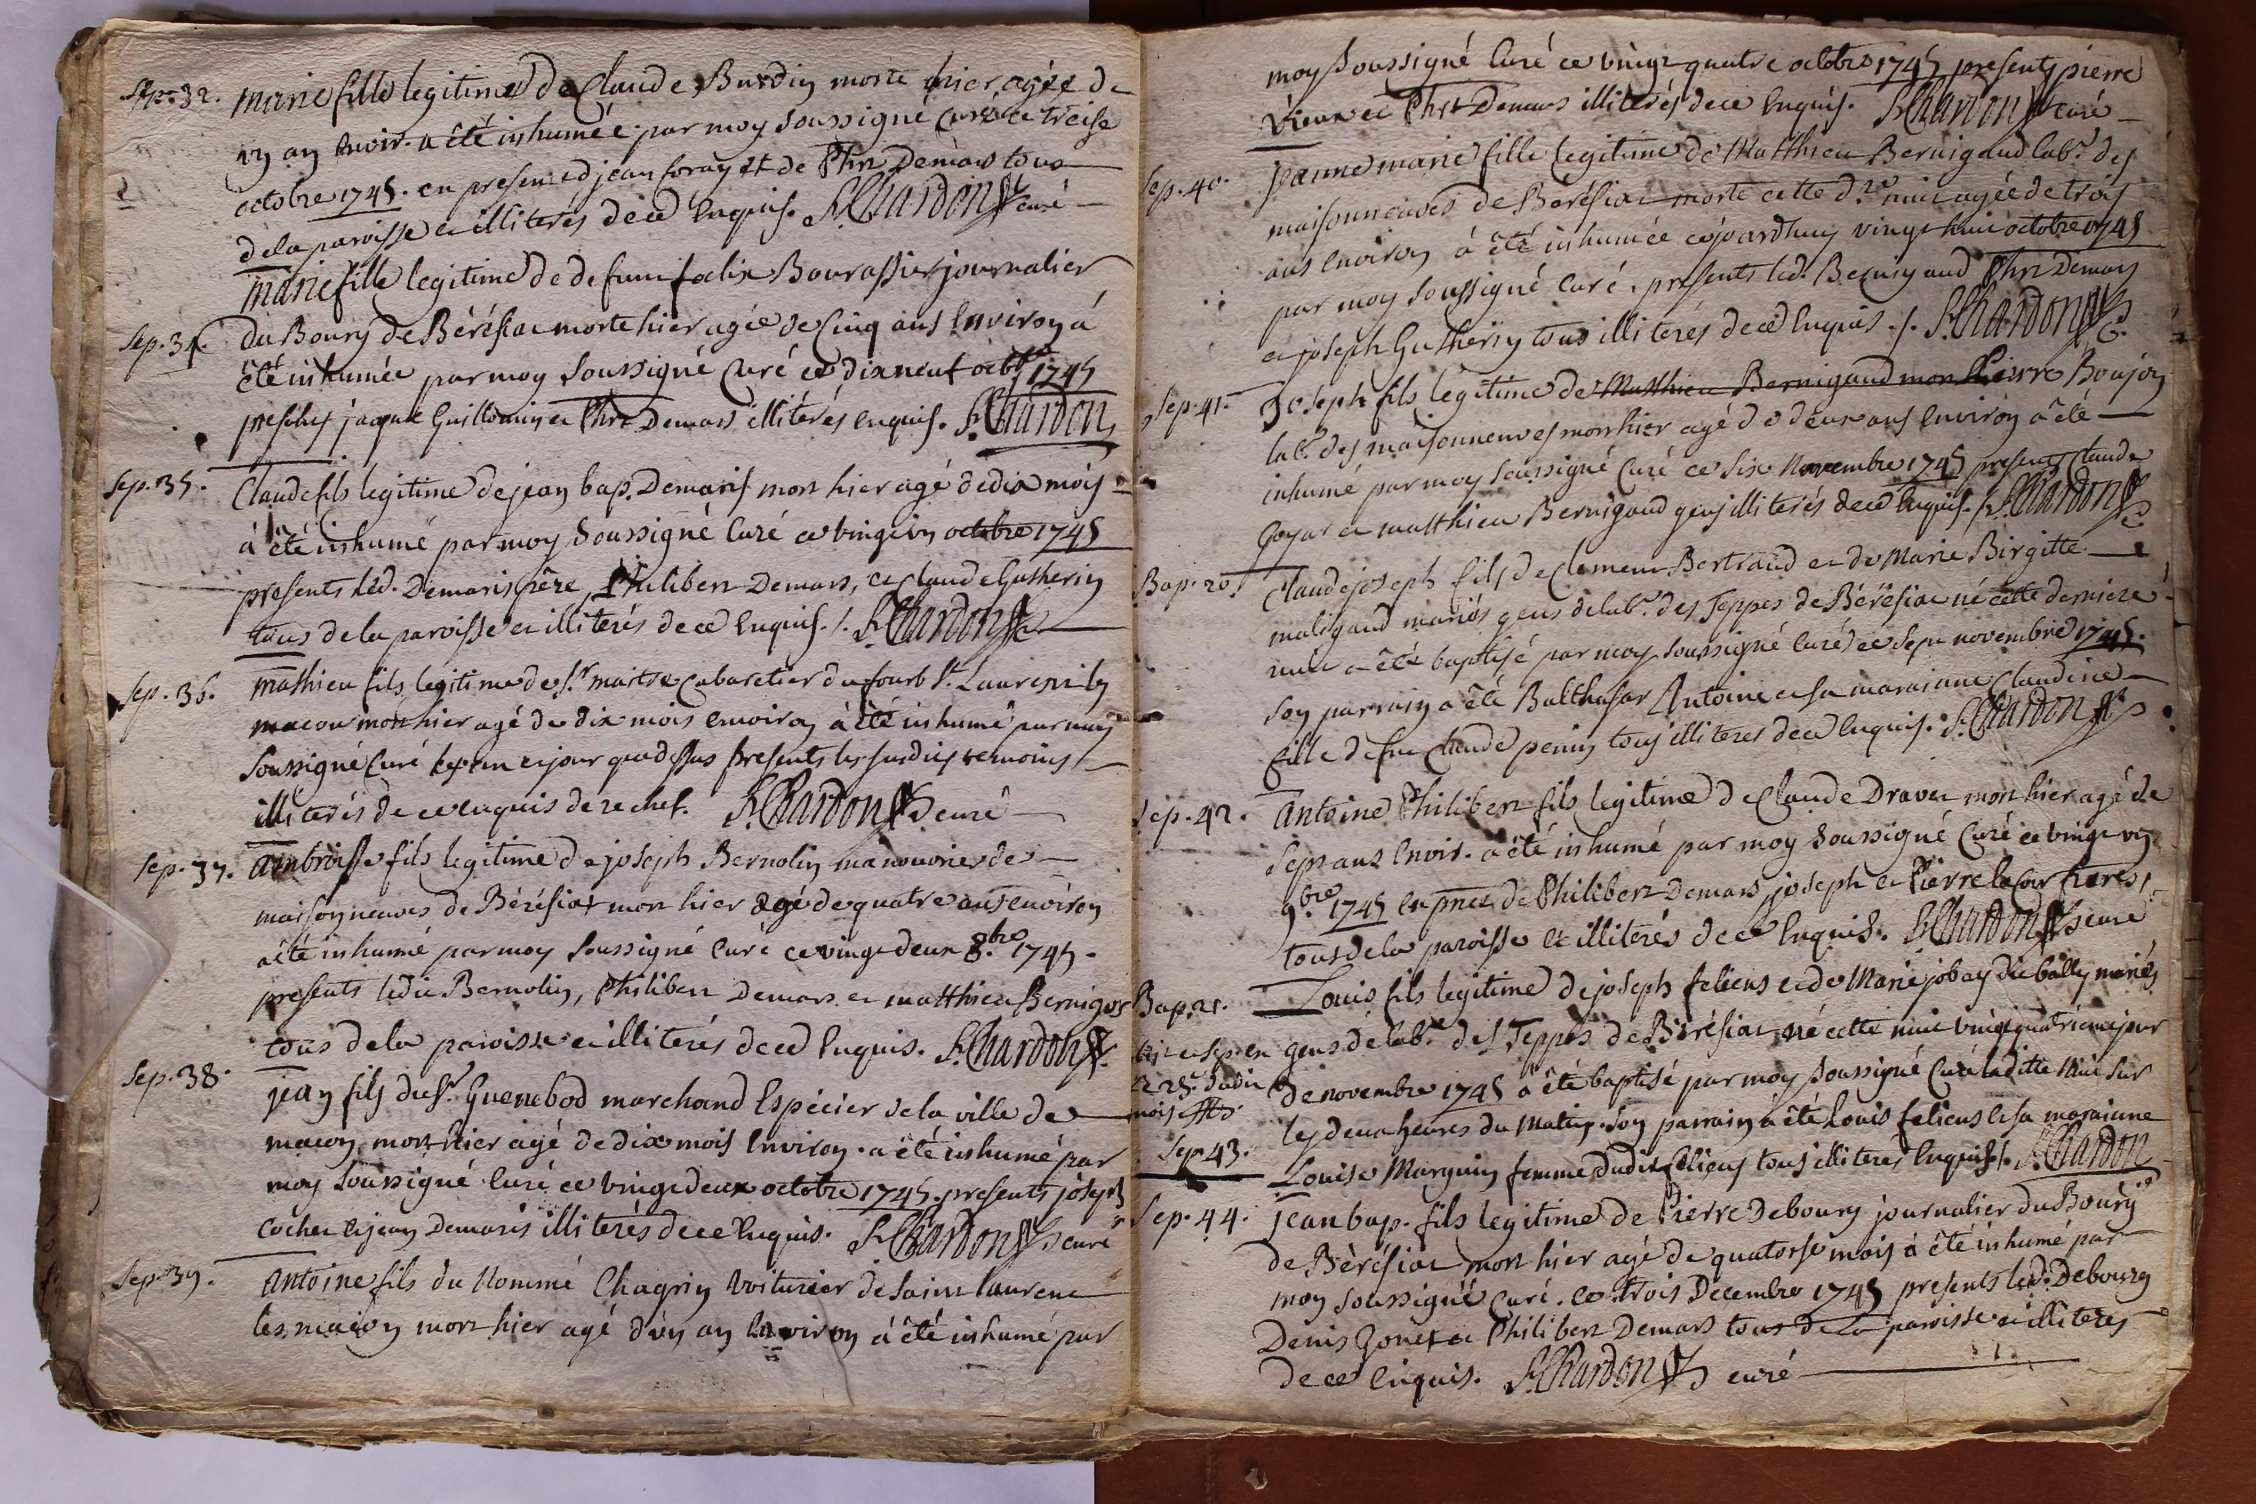 Sep. 32. marie fille legitime de Claude Burdin morte hier, agée de
un an envir. a été inhumée par moy soussigné Curé ce treise
octobre 1745. en presence de jean foray et de Phrt Demars tous
de la paroisse et illiterés de ce enquis. Chardon curé
marie fille legitime de defunt felix Bourassier journalier
Sep. 34. du Bourg de Bérésiat morte hier agée de Cinq ans environ á
été inhumée par moy soussigné Curé ce dix neuf octb. 1745
presents jaque Guillomin et Phrt Demars illiterés enquis. Chardon
Sep. 35. Claude fils legitime de jean bap. Demaris mort hier agé de dix mois
á été inhumé par moy soussigné Curé ce vingt un octobre 1745
presents led. Demaris pére, Philibert Demars, et Claude Gutherin
tous de la paroisse et illiterés de ce enquis. /. Chardon
Sep. 36. mathieu fils legitime de Sr. maitre Cabaretier du fourb St. Laurent lez
macon mort hier agé de dix mois environ á été inhumé par moy
soussigné Curé les an et jour que dessus presents les susdits temoins
illiterés de ce enquis de rechef. Chardon curé
Sep. 37. ambroise fils legitime de joseph Bernolin manouvrier de
maisonneuves de Bérésiat mort hier agé de quatre ans environ
a été inhumé par moy soussigné Curé ce vingt deux 8.bre 1745.
presents ledit Bernolin, Philibert Demars et matthieu Bernigos
tous de la paroisse et illiterés de ce enquis. Chardon
Sep. 38. jean fils du Sr. Guenebod marchand Espécier de la ville de
macon, mort hier agé de dix mois environ. a été inhumé par
moy soussigné Curé ce vingt deux octobre 1745. presents joseph
Cochet et jean Demaris illiterés de ce enquis. Chardon curé
Sep. 39. antoine fils du Nommé Chagrin Voiturier de saint laurent
les macon mort hier agé d'un an environ á été inhumé par
moy soussigné Curé ce vingt quatre octobre 1745 presents pierre
Vieux et Phrt Demars illiterés de ce enquis. Chardon curé
Sep. 40. jeanne marie fille legitime de Matthieu Bernigaud lab.r des
maisonneuves de Bérésiat morte cette d.re nuit agée de trois
ans environ á été inhumée cejourdhuy vingt huit octobre 1745
par moy soussigné Curé. presents led. Bernigaud Phrt Demars
et joseph Gutherin tous illiterés de ce enquis. /. Chardon C.
Sep. 41. Joseph fils legitime de Matthieu Bernigaud mort Pierre Boujon
lab.r des maisonneuves mort hier agé de deux ans environ a été
inhumé par moy soussigné Curé ce six Novembre 1745 presents Claude
Goyat et matthieu Bernigaud gens illiterés de ce enquis. /. Chardon
Bap. 20. Claude joseph fils de Clement Bertrand et de Marie Birgitte
maligaud mariés gens de lab.r des Teppes de Bérésiat né cette derniere
nuit a été baptisé par moy soussigné Curé ce sept novembre 1745.
son parrain a été Balthasar Antoine et sa maraine Claudine
fille de feu Claude penin tous illiteres de ce enquis. Chardon
Sep. 42. Antoine Philibert fils legitime de Claude Dravet mort hier agé de
sept ans envir. a été inhumé par moy soussigné Curé ce vingt un
9.bre 1745 en pnce de Philibert Demars joseph et Pierre lacour freres,
tous de la paroisse et illiterés de ce enquis. Chardon curé
Bap. 21. Louis fils legitime de joseph feliens et de Marie jobay dit bailly mariés
et sep. en gens de lab.r des Teppes de Bérésiat né cette nuit vingt quatrieme jour
le 25.e dudit de novembre 1745 a été baptisé par moy soussigné Curé laditte nuit sur
mois les deux heures du matin. son parrain á été Louis feliens et sa maraine
Sep. 43. Louise Marguin femme dudit feliens tous illiterés enquis. /. Chardon
Sep. 44. jean bap. fils legitime de Pierre Debourg journalier du Bourg
de Bérésiat mort hier agé de quatorse mois á été inhumé par
moy soussigné Curé. ce trois Decembre 1745 presents led. Debourg
Denis Gonet et Philibert Demars tous de la paroisse et illiteres
de ce enquis. Chardon curé